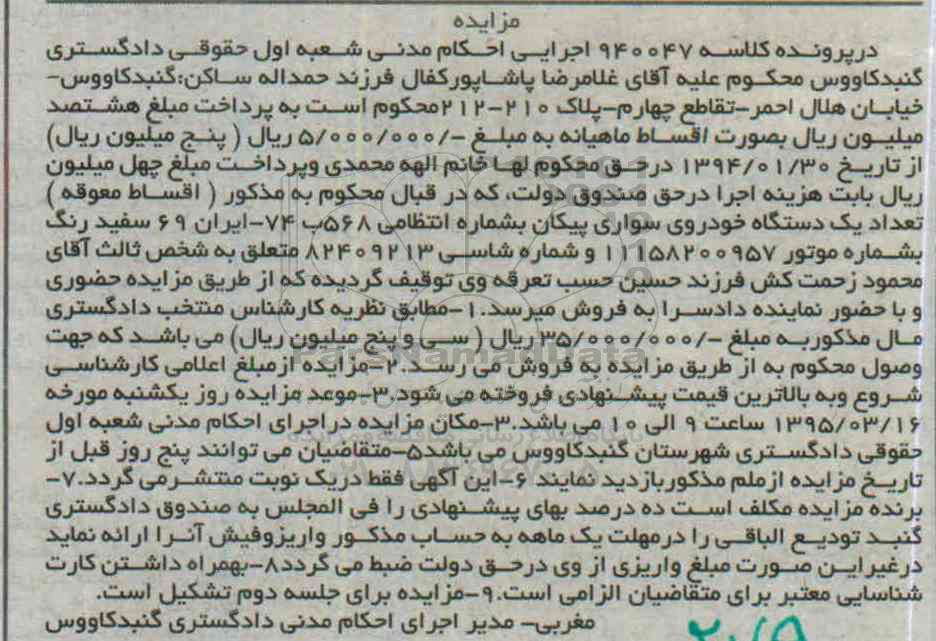 مزایده
درپرونده کلاسه ۹۴۰۰۴۷ اجرایی احکام مدنی شعبه اول حقوقی دادگستری
گنبدکاووس محکوم علیه آقای غلامرضا پاشاپورکفال فرزند حمداله ساکن:گنبدکاووس-
خیابان هلال احمر-تقاطع چهارم-پلاک ۲۱۰-۲۱۲محکوم است به پرداخت مبلغ هشتصد
میلیون ریال بصورت اقساط ماهیانه به مبلغ -/۵/۰۰۰/۰۰۰ ریال ( پنج میلیون ریال)
از تاریخ ۱۳۹۴/۰۱/۳۰ درحق محکوم لها خانم الهه محمدی وپرداخت مبلغ چهل میلیون
ریال بابت هزینه اجرا درحق صندوق دولت، که در قبال محکوم به مذکور ( اقساط معوقه )
تعداد یک دستگاه خودروی سواری پیکان بشماره انتظامی ۵۶۸ب ۷۴-ایران ۶۹ سفید رنگ
بشماره موتور ۱۱۱۵۸۲۰۰۹۵۷ و شماره شاسی ۸۲۴۰۹۲۱۳ متعلق به شخص ثالث آقای
محمود زحمت کش فرزند حسین حسب تعرفه وی توقیف گردیده که از طریق مزایده حضوری
و با حضور نماینده دادسرا به فروش میرسد.۱-مطابق نظریه کارشناس منتخب دادگستری
مال مذکوربه مبلغ -/۳۵/۰۰۰/۰۰۰ریال ( سی و پنج میلیون ریال) می باشد که جهت
وصول محکوم به از طریق مزایده به فروش می رسد.۲-مزایده ازمبلغ اعلامی کارشناسی
شروع وبه بالاترین قیمت پیشنهادی فروخته می شود.۳-موعد مزایده روز یکشنبه مورخه
۱۳۹۵/۰۳/۱۶ ساعت ۹ الی ۱۰ می باشد.۳-مکان مزایده دراجرای احکام مدنی شعبه اول
حقوقی دادگستری شهرستان گنبدکاووس می باشد۵-متقاضیان می توانند پنج روز قبل از
تاریخ مزایده ازملم مذکوربازدید نمایند ۶-این آگهی فقط دریک نوبت منتشرمی گردد.۷-
برنده مزایده مکلف است ده درصد بهای پیشنهادی را فی المجلس به صندوق دادگستری
گنبد تودیع الباقی را درمهلت یک ماهه به حساب مذکور واریزوفیش آنرا ارائه نماید
درغیراین صورت مبلغ واریزی از وی درحق دولت ضبط می گردد۸-بهمراه داشتن کارت
شناسایی معتبر برای متقاضیان الزامی است.۹-مزایده برای جلسه دوم تشکیل است.
مغربی- مدیر اجرای احکام مدنی دادگستری گنبدکاووس
ParsNamadData